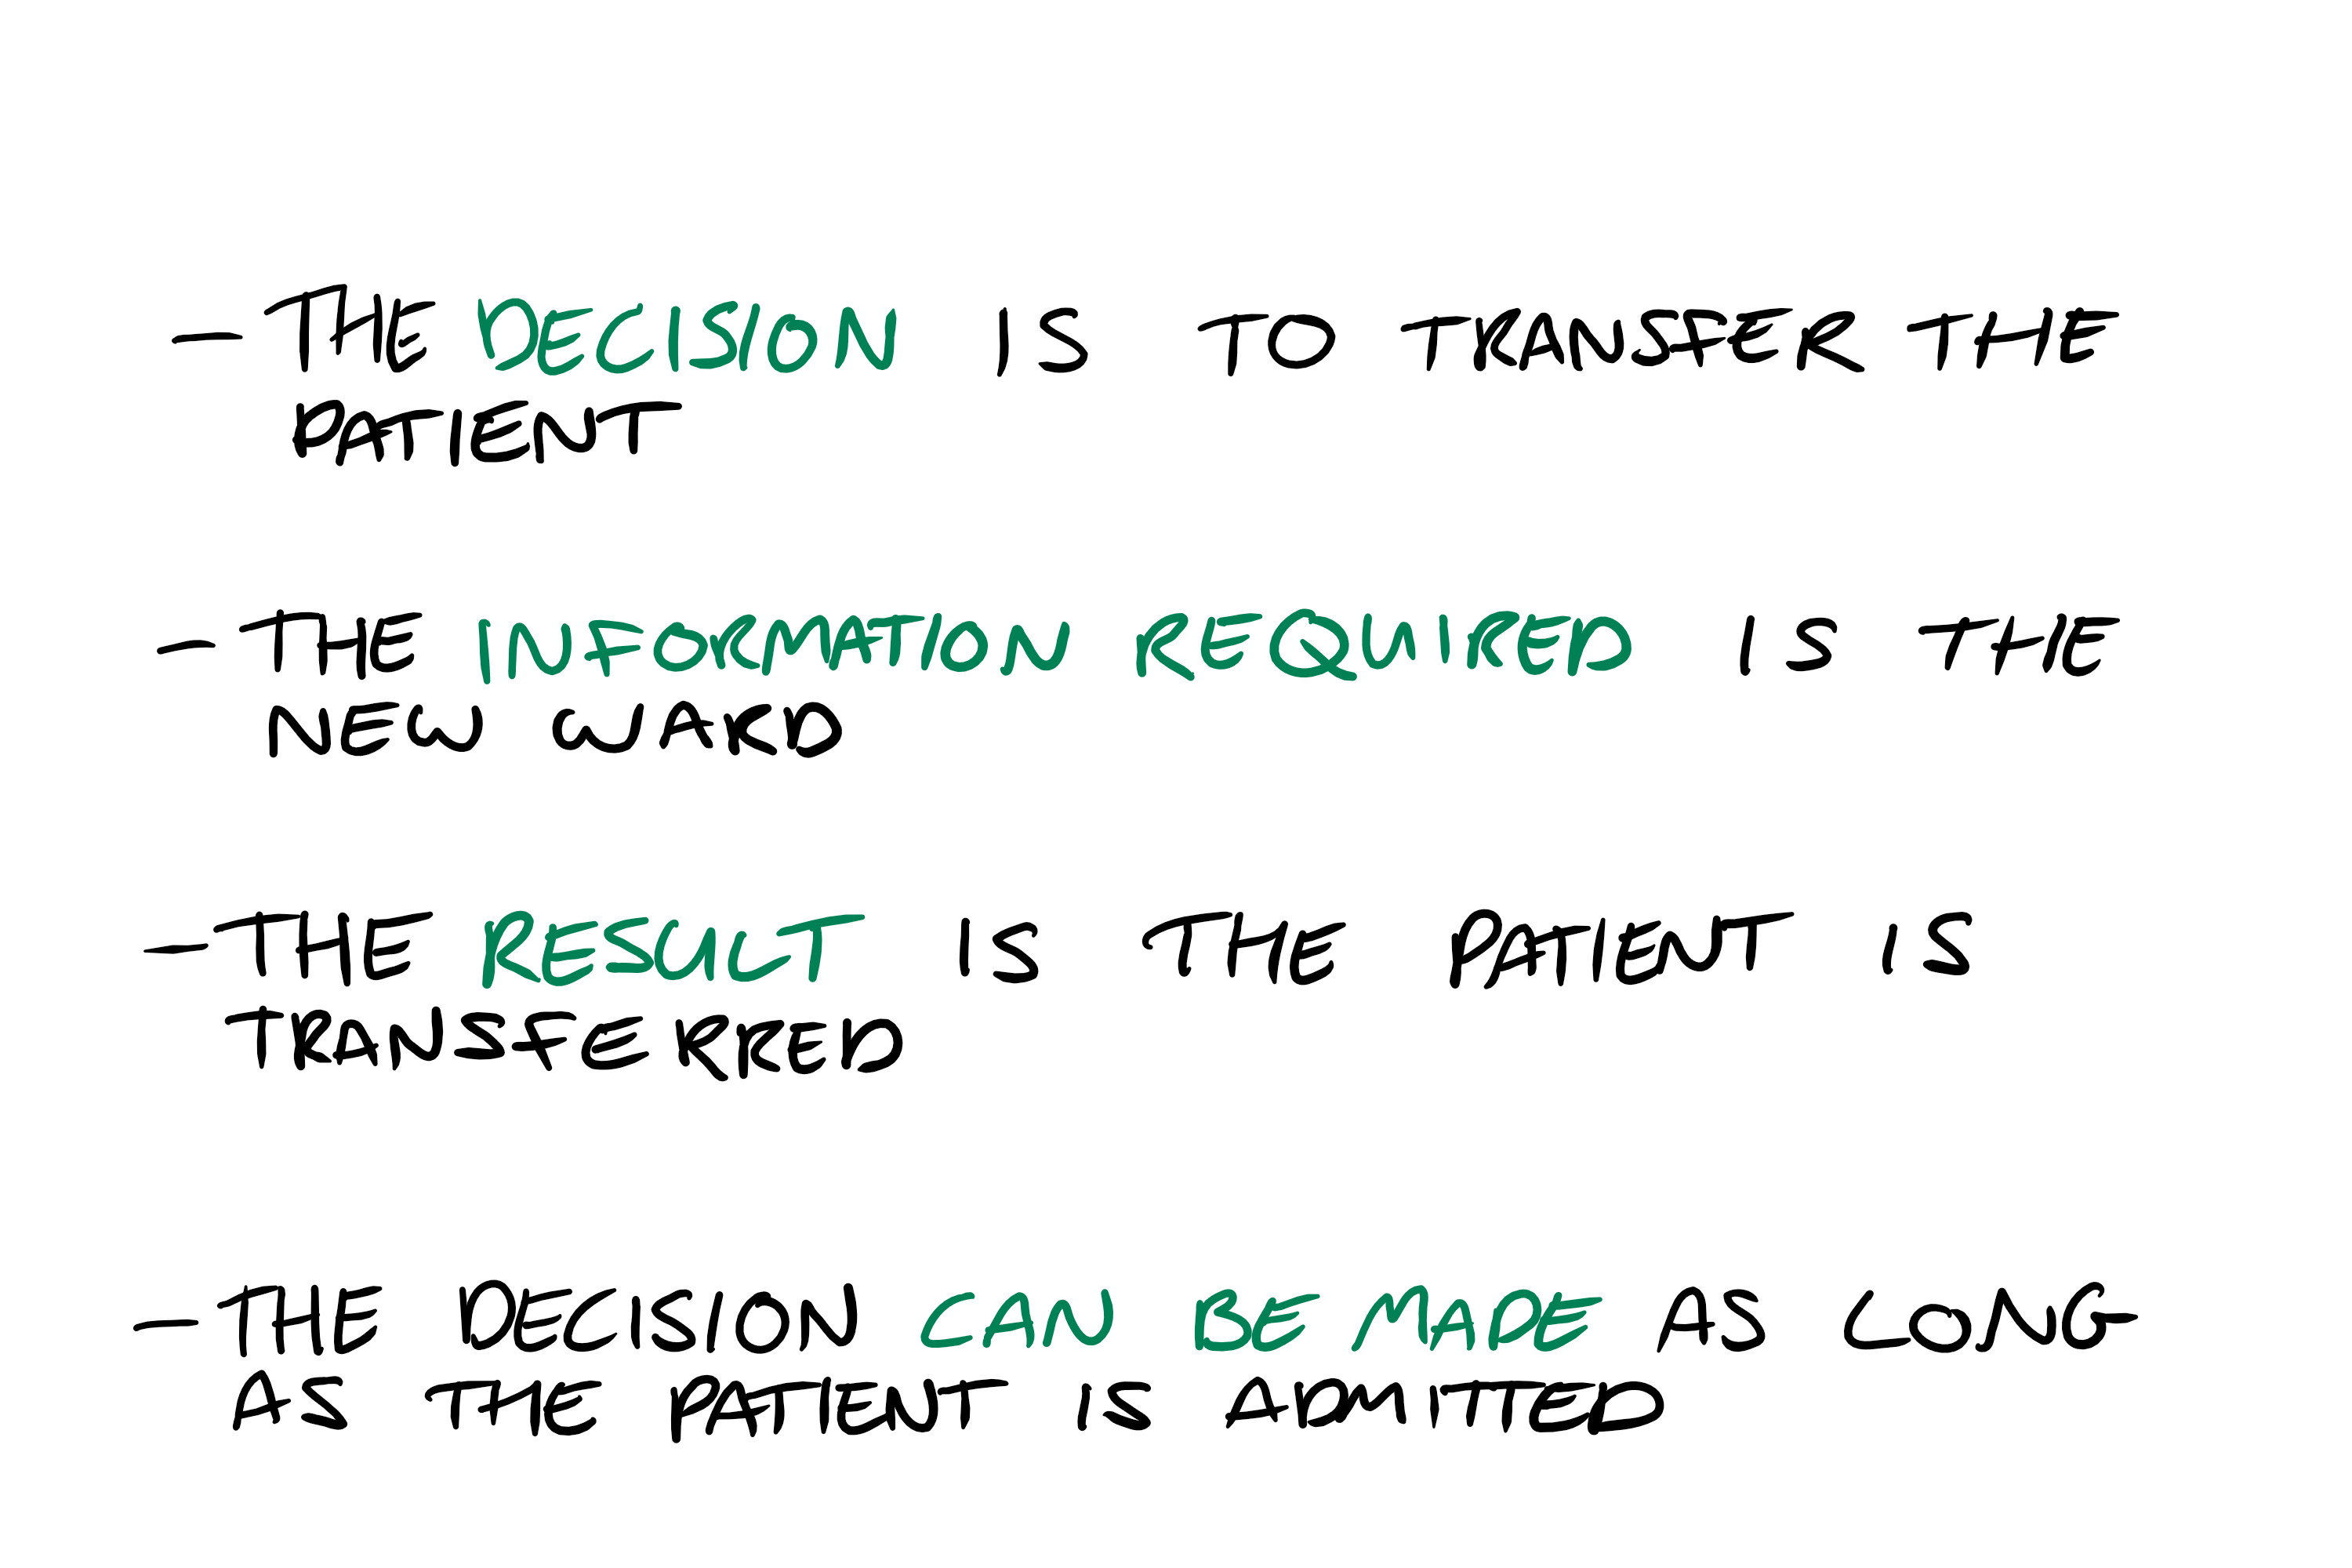 - THE DECISION IS TO TRANSFER THE
PATIENT
- THE INFORMATION REQUIRED IS THE
NEW WARD
- THE RESULT IS THE PATIENT IS
TRANSFERRED
- THE DECISION CAN BE MADE AS LONG
AS THE PATIENT IS ADMITTED